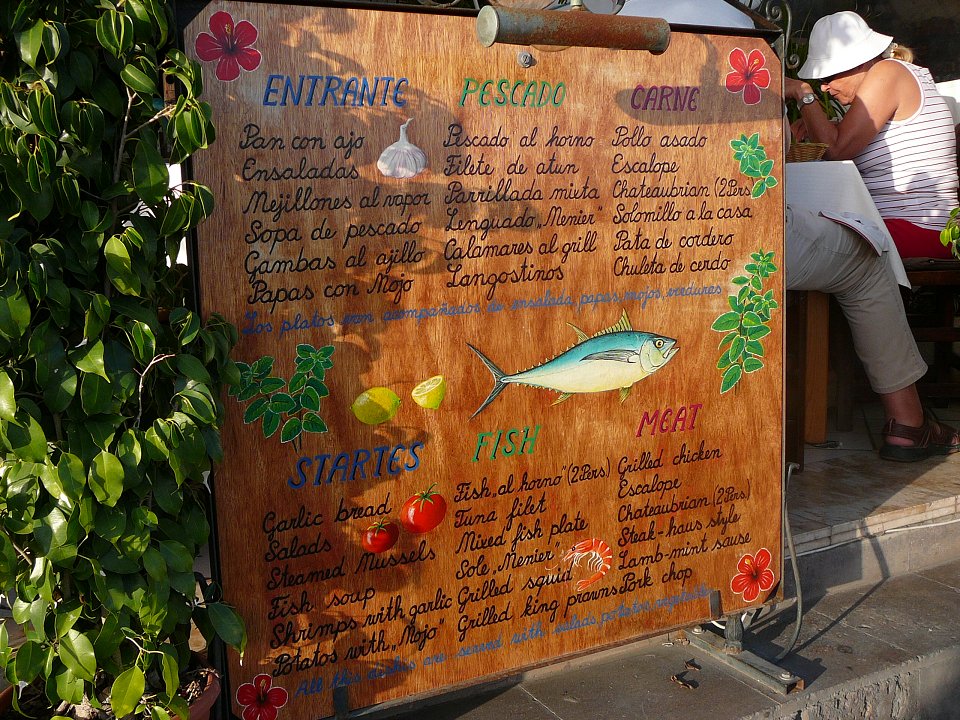 ENTRANTE
Pan con ajo
Ensaladas
Mejillones al vapor
Sopa de pescado
Gambas al ajillo
Papas con Mojo
PESCADO
Pescado al horno
Filete de atun
Parrillada mixta
Lenguado „Menier"
Calamares al grill
Langostinos
CARNE
Pollo asado
Escalope
Chateaubrian (2Pers)
Solomillo a la casa
Pata de cordero
Chuleta de cerdo
Los platos van acompañados de ensalada, papas, mojos, verdures
STARTES
Garlic bread
Salads
Steamed Mussels
Fish soup
Shrimps with garlic
Potatos with „Mojo"
FISH
Fish „al horno" (2Pers)
Tuna filet
Mixed fish plate
Sole „Menier"
Grilled squid
Grilled king prawns
MEAT
Grilled chicken
Escalope
Chateaubrian (2Pers.)
Steak-haus style
Lamb-mint sause
Pork chop
All this dishes are served with salads, potatos,